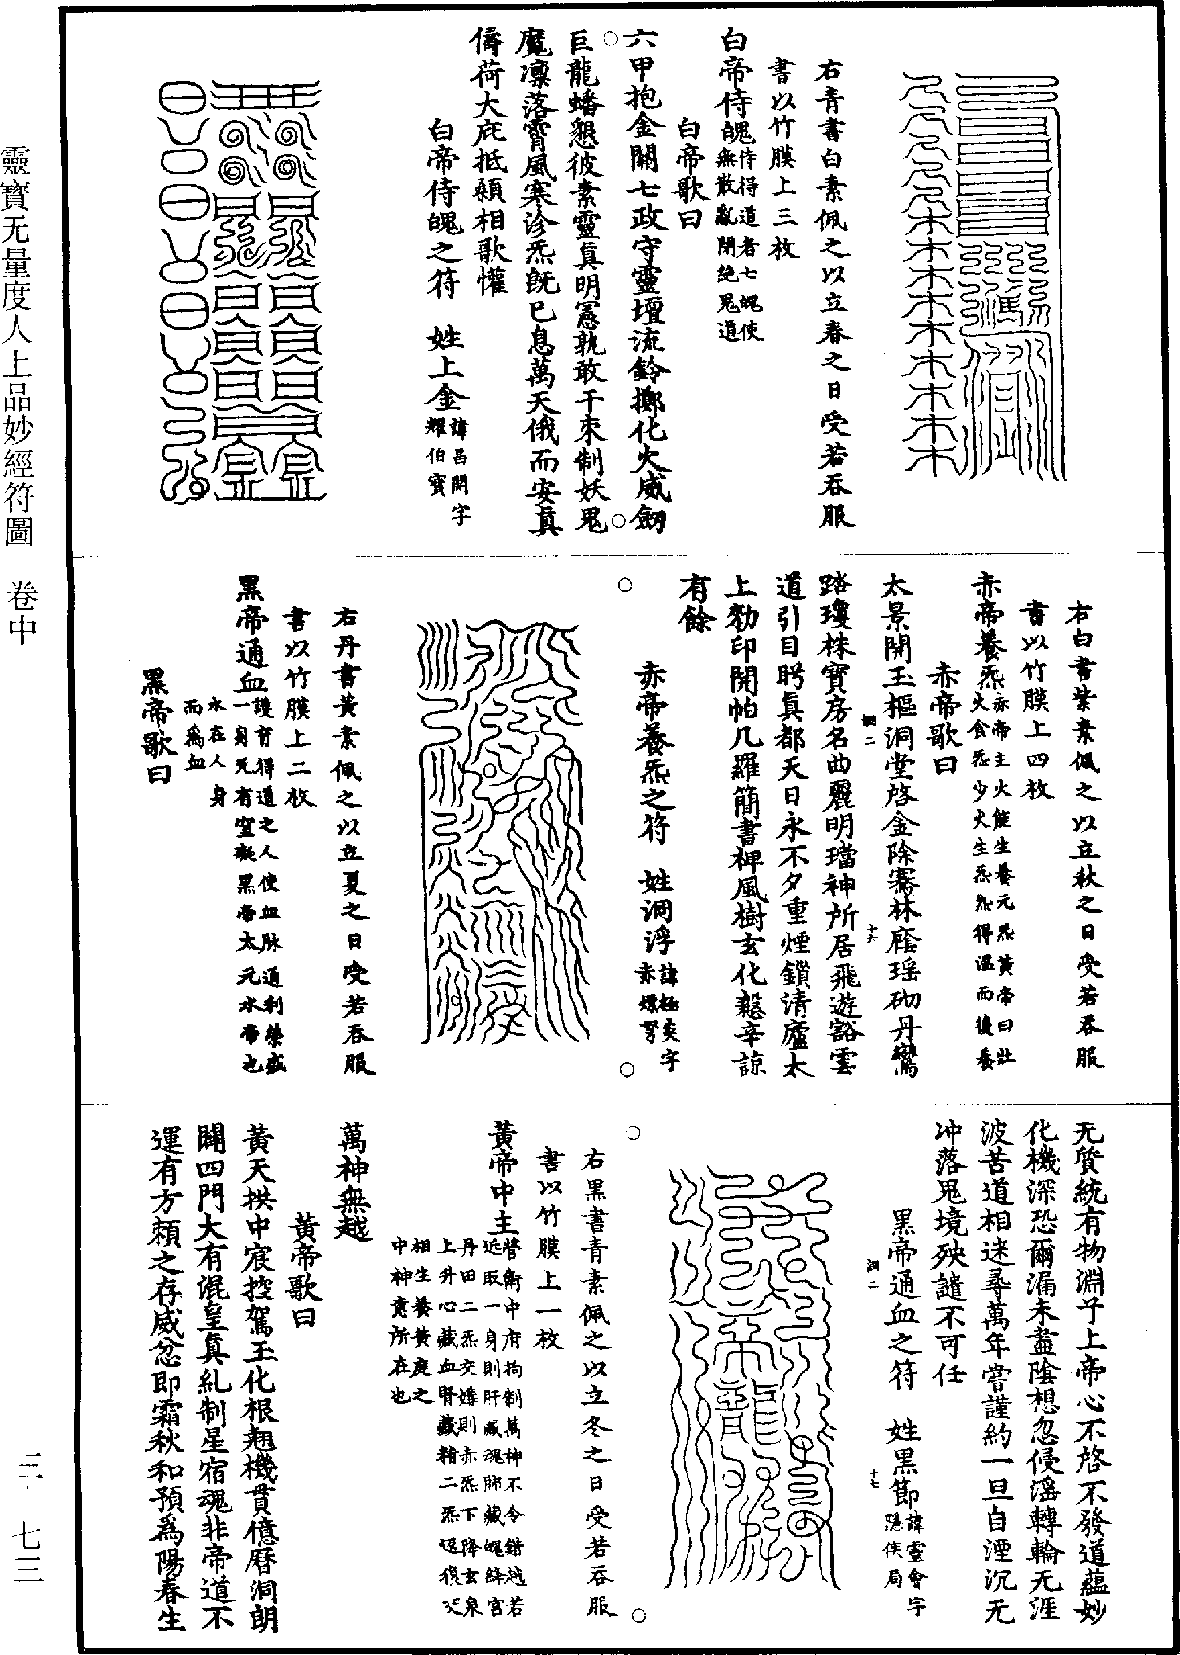 右青書白素佩之以立春之日受若吞服
書以竹膜上三枚
白帝侍魄侍得道者七魄使無散亂閉絕鬼道
白帝歌曰
六甲抱金關七政守靈壇流鈴擲化火威劒
巨龍蟠懇彼素靈真明憲孰敢干束制妖鬼
魔凜落霄風寒診炁旣已息萬天俄而安真
儔荷大庇抵賴相歌懽
白帝侍魄之符　姓上金諱昌開字耀伯寶
右白書紫素佩之以立秋之日受若吞服
書以竹膜上四枚
赤帝養炁赤帝主火能生養元炁黃帝曰壯火食炁少火生炁炁得溫而後養
赤帝歌曰
太景開玉樞洞堂啓金除騫林蔭瑶砌丹鸞
踏瓊株寶房名曲麗明璫神所居飛遊豁雲
道引目眄真都天日永不夕重煙鎖清廬太
上勑印開帕几羅簡書椑風樹玄化懃辛諒
有餘
赤帝養炁之符　姓洞浮諱極炎字赤熛弩
右丹書黃素佩之以立夏之日受若吞服
書以竹膜上二枚
黑帝通血護育得道之人使血脉通利榮盛一身旡有窒礙黑帝太元水帝也水在人身而爲血
黑帝歌曰
无質統有物淵乎上帝心不啓不發道蘊妙
化機深恐爾漏未盡陰想忽侵滛轉輪无涯
波苦道相迷尋萬年嘗謹約一旦自湮沉无
冲落鬼境殃譴不可任
黑帝通血之符　姓黑節諱靈會字隱侯局
右黑書青素佩之以立冬之日受若吞服
書以竹膜上一枚
黃帝中主營衛中府拘制萬神不令錯越若近取一身則肝藏魂肺藏魄絳宮丹田二炁交媾則赤炁下降玄泉上升心藏血腎藏精二炁運復交相生養黃庭之中神意所在也
萬神無越
黃帝歌曰
黃天拱中宸控駕玉化根翹機貫億曆洞朗
闢四門大有混皇真糺制星宿魂非帝道不
運有方賴之存威忿即霜秋和預爲陽春生
靈寶无量度人上品妙經符圖　卷中
三·七三